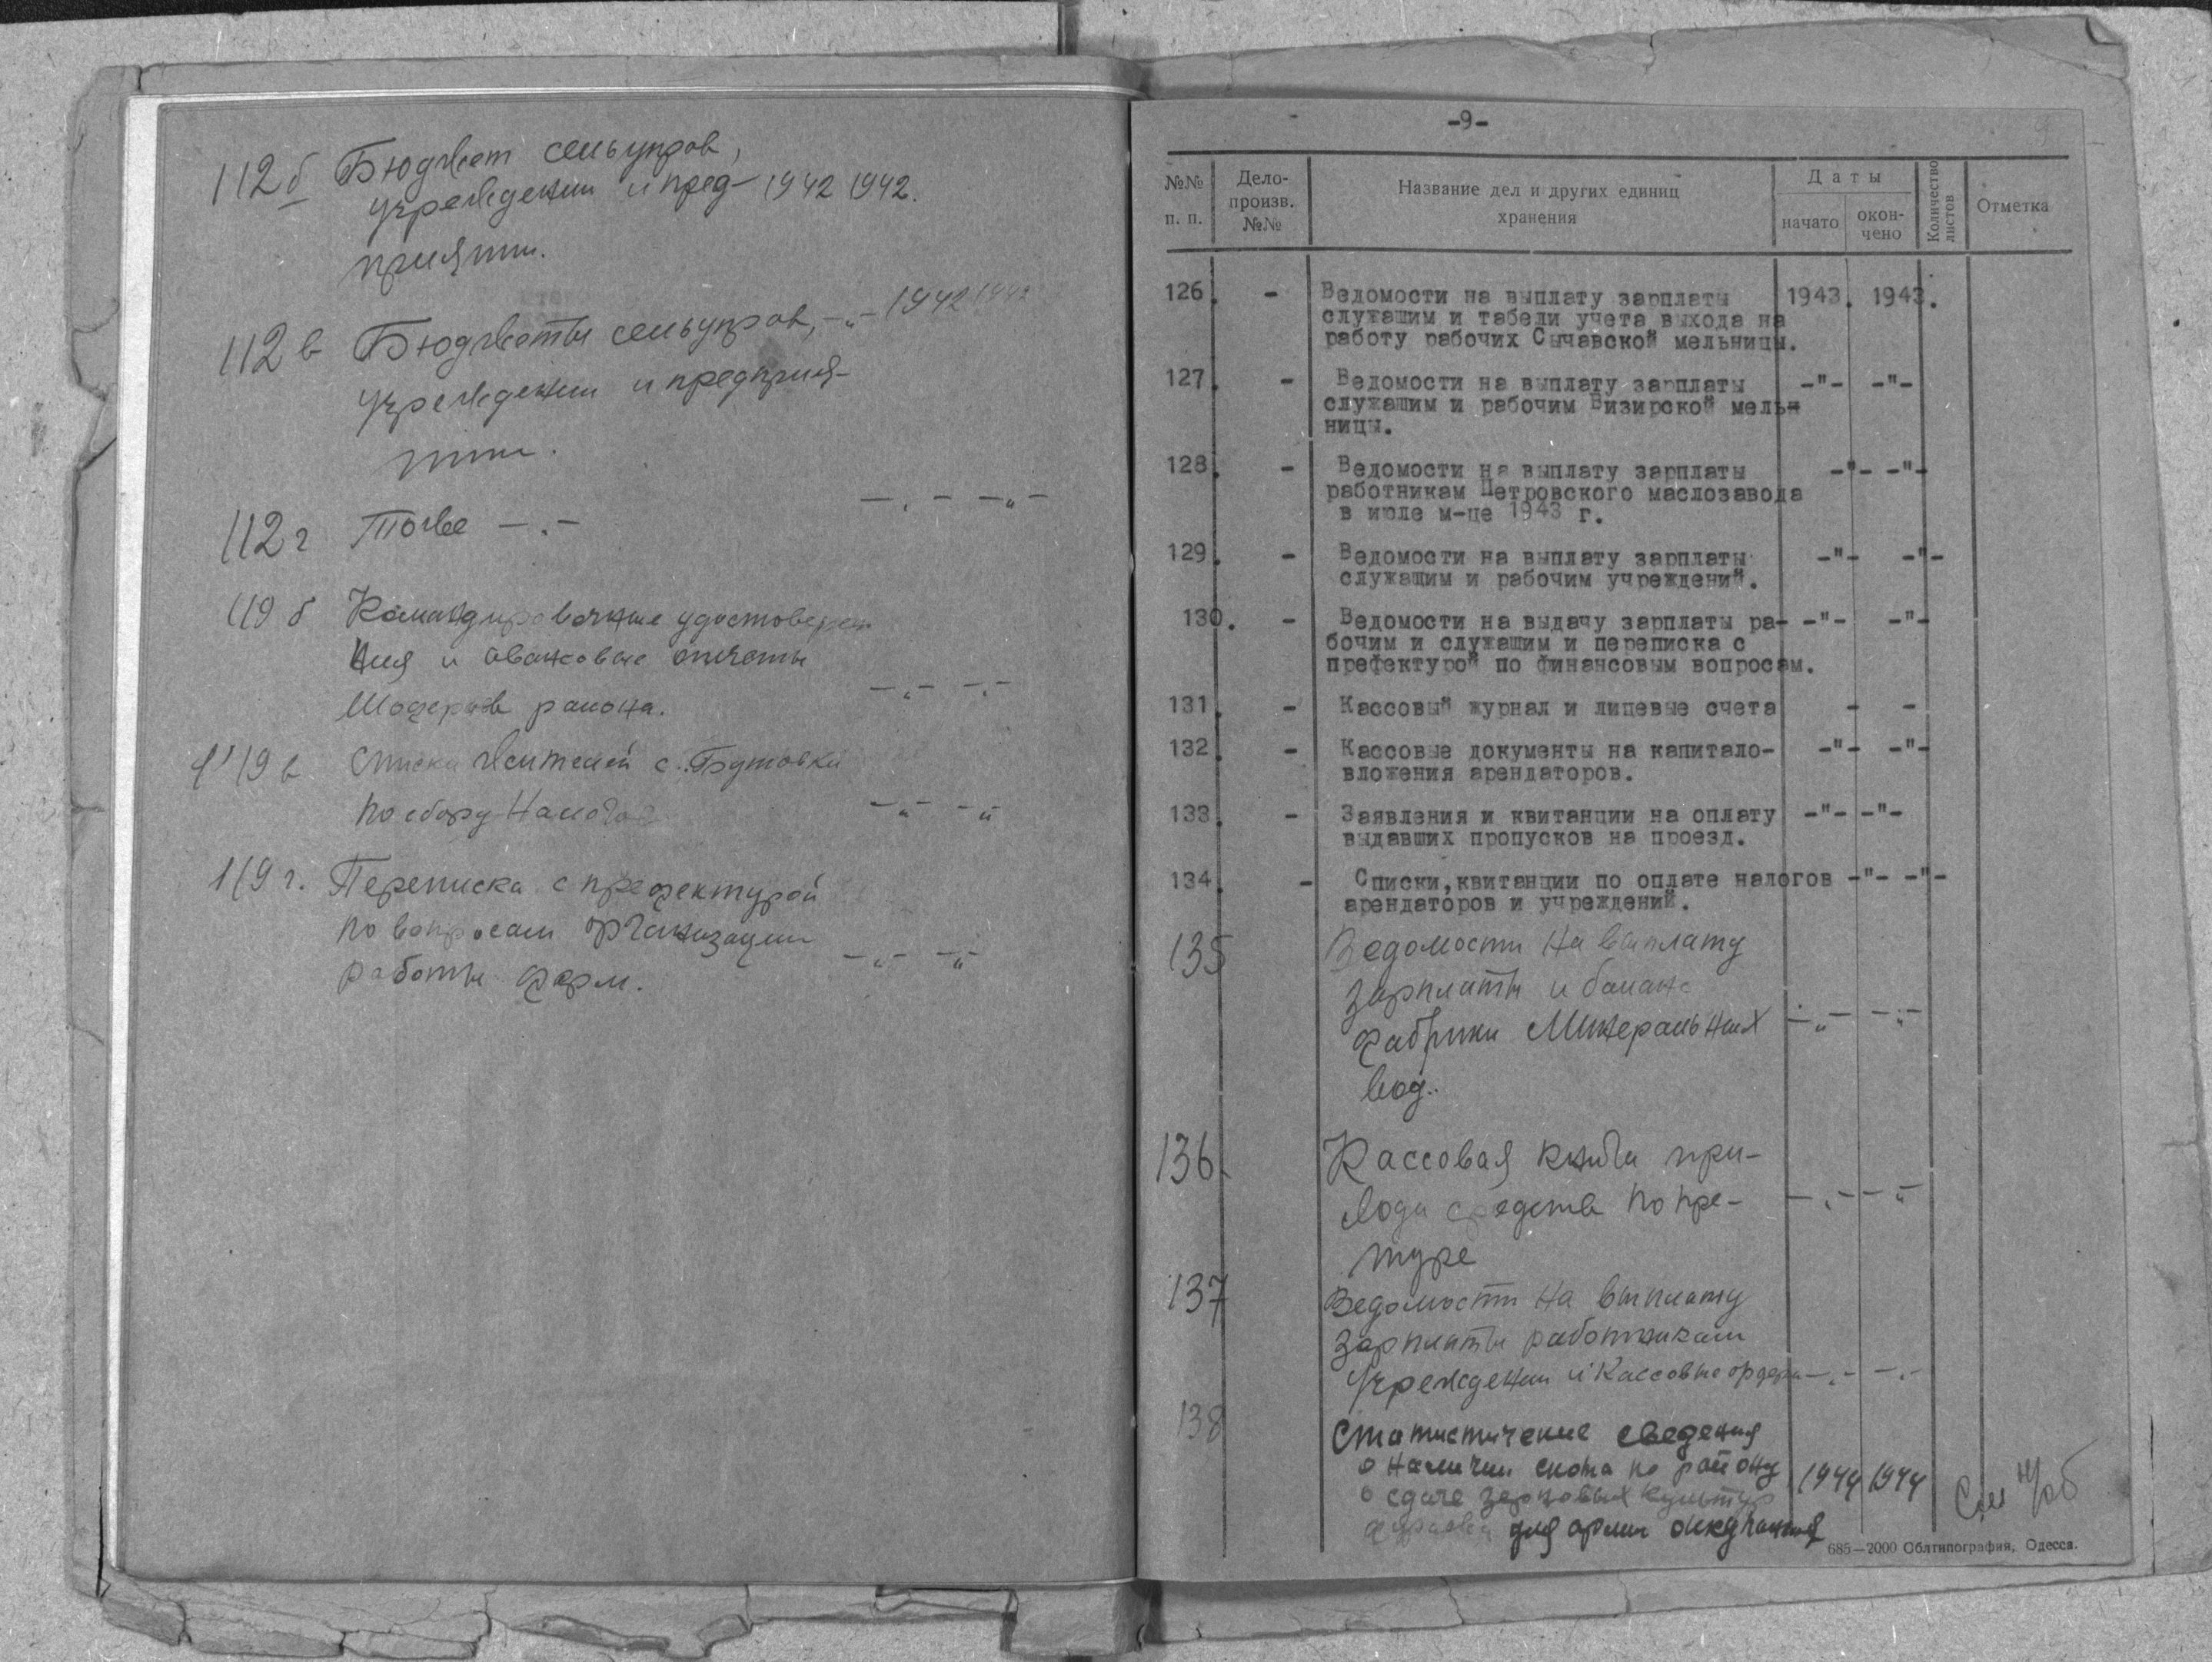 112б Бюджет сельупров,
учреждении и пред- 1942 1942.
приятии.
112в Бюджеты сельупров, -"- 1942 1942
учреждении и предприя-
тии.
112г Тоже -"- -"- -"-
119б Командировочные удостовере
ния и авансовые отчеты
шоферов района. -"- -"-
119в Списки жителей с. Бутовки
по сбору налогов -"- -"-
119г. Переписка с префектурой
по вопросам организации
работы ферм. -"- -"-
-9-
№№ п. п. Дело-произв. №№ Название дел и других единиц хранения Даты начато окон-чено Количество листов Отметка
126. - Ведомости на выплату зарплаты 1943. 1943.
служащим и табели учета выхода на
работу рабочих Сычавской мельницы.
127. - Ведомости на выплату зарплаты -"- -"-
служащим и рабочим Визирской мель-
ницы.
128. - Ведомости на выплату зарплаты -"- -"-
работникам Петровского маслозавода
в июле м-це 1943 г.
129. - Ведомости на выплату зарплаты -"- -"-
служащим и рабочим учреждений.
130. - Ведомости на выдачу зарплаты ра- -"- -"-
бочим и служащим и переписка с
префектурой по финансовым вопросам.
131. - Кассовый журнал и лицевые счета - -
132. - Кассовые документы на капитало- -"- -"-
вложения арендаторов.
133. - Заявления и квитанции на оплату -"- -"-
выдавших пропусков на проезд.
134. - Списки,квитанции по оплате налогов -"- -"-
арендаторов и учреждений.
135 Ведомости на выплату
зарплаты и баланс
фабрики Минеральных -"- -"-
вод.
136. Кассовая книга при-
хода средств по пре- -"- -"-
туре
137 Ведомости на выплату
зарплаты работникам
учреждении и кассовые ордера -"- -"-
138 Статистичекие сведения
о наличии скота по району 1944 1944
о сдаче зерновых культур
фуража для армии оккупантов
685—2000 Облтипография, Одесса.